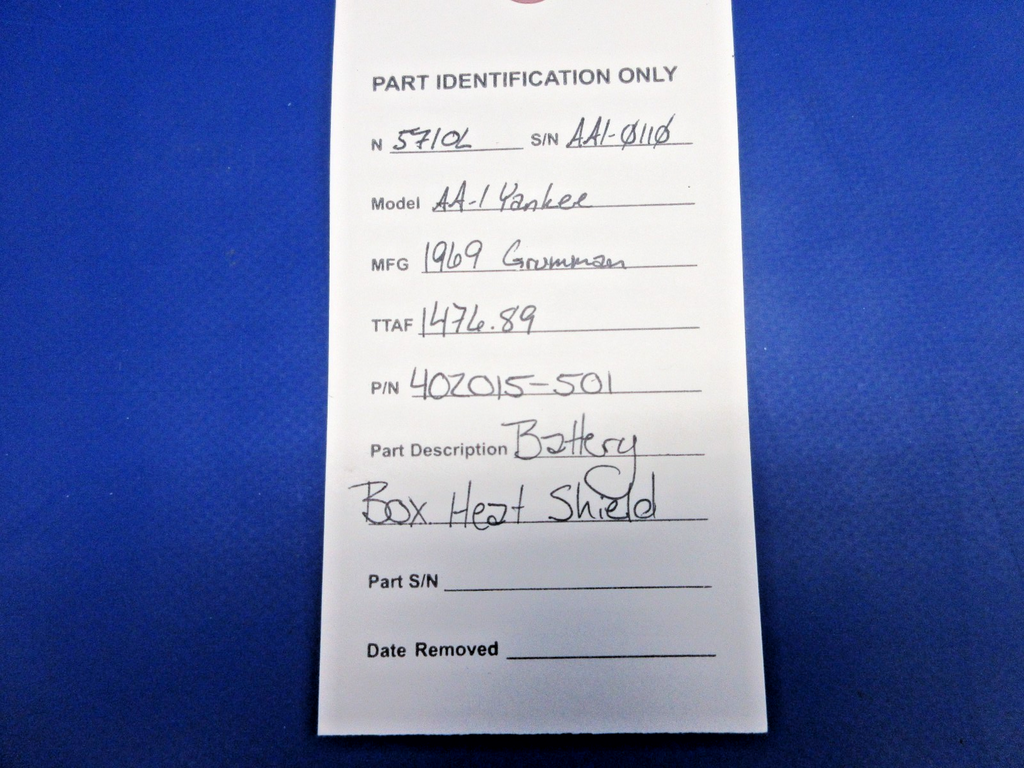 PART IDENTIFICATION ONLY
N 5710L S/N AA1-0110
Model AA-1 Yankee
MFG 1969 Grumman
TTAF 1476.89
P/N 402015-501
Part Description Battery
Box Heat Shield
Part S/N
Date Removed